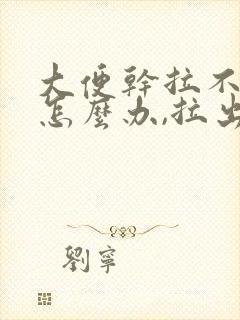 大便幹拉不
怎麼办,,拉出
劉寧